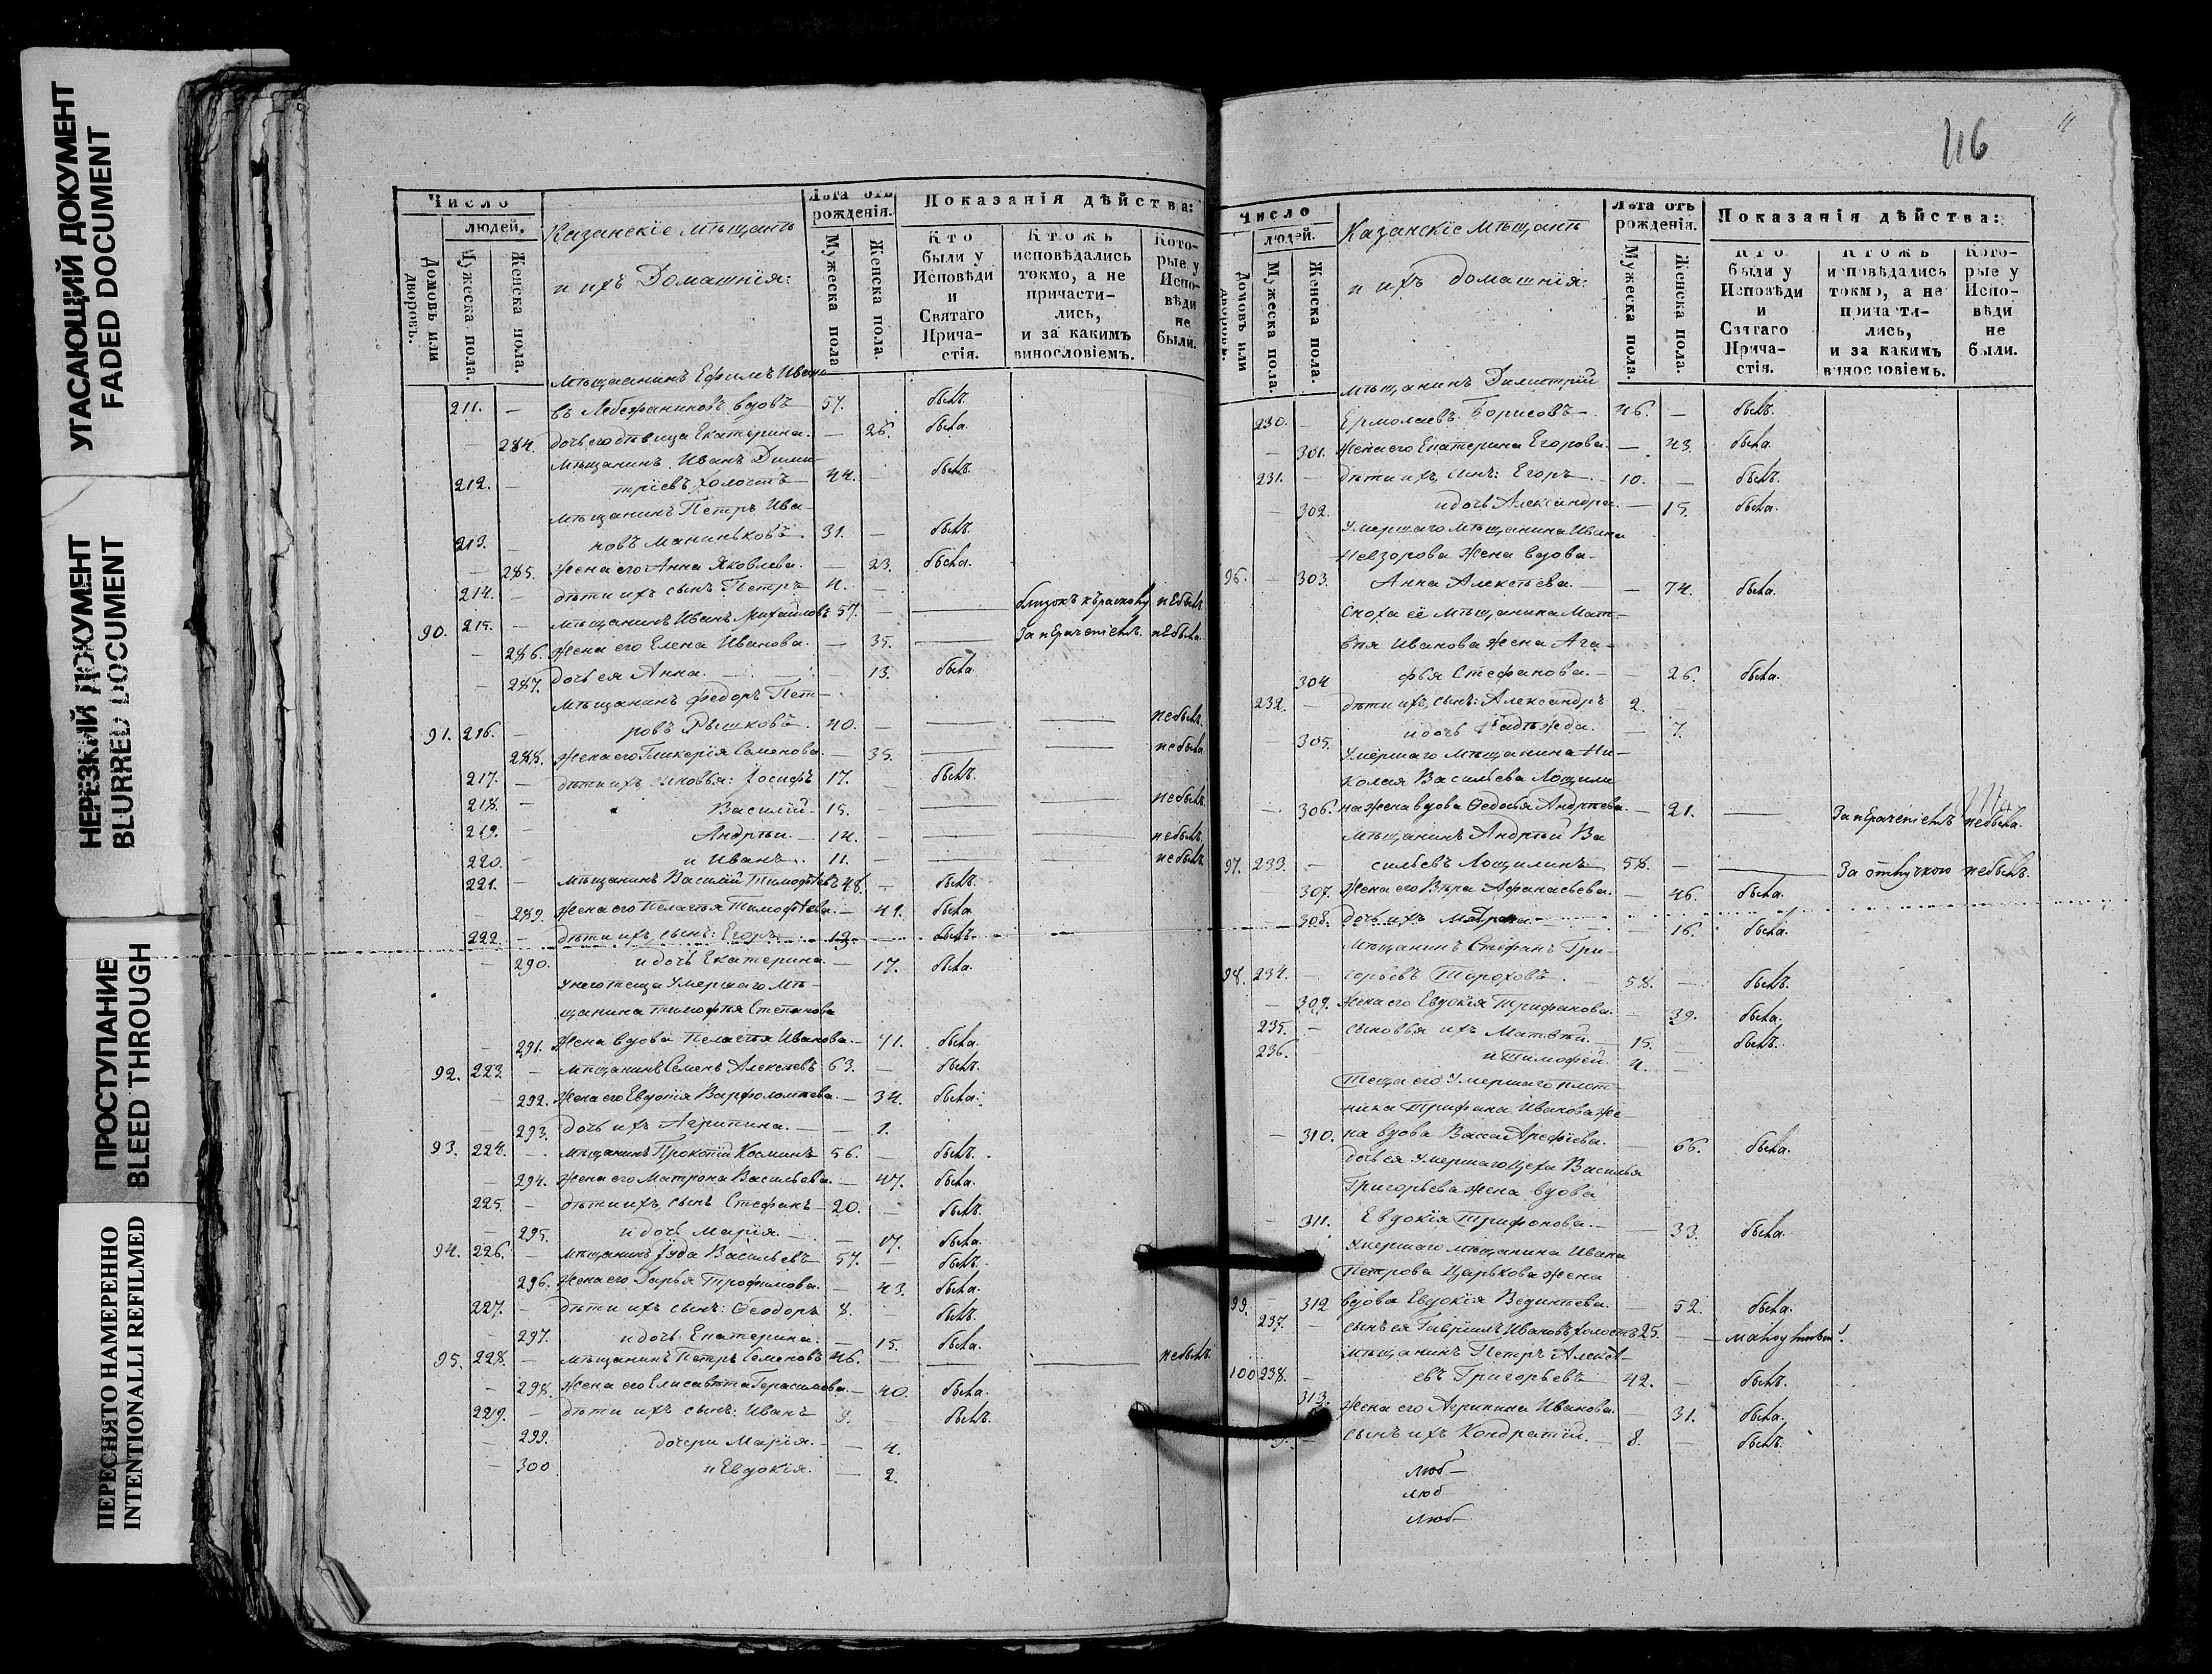 УГАСАЮЩИЙ ДОКУМЕНТ
FADED DOCUMENT
НЕРЕЗКИЙ ДОКУМЕНТ
BLURRED DOCUMENT
ПРОСТУПАНИЕ
BLEED THROUGH
ПЕРЕСНЯТО НАМЕРЕННО
INTENTIONALLI REFILMED
Число
людей.
Домовъ или дворовъ.
Мужеска пола.
Женска пола.
Казанскіе Мѣщанѣ
и ихъ Домашнія:
Лѣта отъ рожденія.
Мужеска пола
Женска пола.
Показанія дѣйства:
Кто были у Исповѣди и Святаго Причастія.
Ктожъ исповѣдались токмо, а не причастились, и за какимъ винословіемъ.
Которые у Исповѣди не были.
Мѣщанинъ Ефимъ Ивано
211. — въ вдовъ — 57. былъ.
— 284. дочь его дѣвица Екатерина. — 26. была.
Мѣщанинъ Иванъ Дими-
212. — тріевъ холостъ — 44. — былъ.
Мѣщанинъ Петръ Ива-
213. — новъ Маниньковъ — 31. — былъ.
— 285. жена его Анна Яковлева. — 23. была.
214. — дѣти ихъ сынъ Петръ 4. —
90. 215. — Мѣщанинъ Иванъ Михайловъ 57. — небылъ
— 286. жена его Елена Иванова. — 35. — небыла.
— 287. дочь ея Анна. — 13. была.
Мѣщанинъ Федоръ Пет-
91. 216. — ровъ Рышковъ. 40. — — — небылъ.
288. жена его Гликерія Семенова. — 35. — — небыла
217. — дѣти ихъ, сыновья: Іосифъ 17. — былъ.
218. — Василій. 15. — — небылъ.
219. — Андрѣи. — 14. — — — небылъ.
220. — и Иванъ. 11. — — — небылъ
221. — Мѣщанинъ Василій Тимофѣевъ 48. — былъ.
— 289. жена его Пелагѣя Тимофѣева. — 41. была
222. — дѣти ихъ, сынъ: Егоръ 12. — былъ.
— 290. и дочь Екатерина — 17. была.
У него теща Умершаго Мѣ-
щанина Тимофѣя Степанова
— 291. жена вдова Пелагѣя Иванова. — 71. была.
92. 223. — Мѣщанинъ Семенъ Алексѣевъ 63. — былъ.
— 292. жена его Евдокія Варфоломѣева. — 34. была.
— 293. дочь ихъ Агрипина. — — 1.
93. 224. — Мѣщанинъ Прокопій Косминъ 56. — былъ.
— 294. жена его Матрона Васильева. — 47. была.
225. — дѣти ихъ, сынъ Стефанъ — 20. — былъ.
— 295. и дочь Марія. — — 17. была.
94. 226. — Мѣщанинъ Іуда Васильевъ 57. — былъ.
296. жена его Дарья Трофимова. — 43. была.
227. — дѣти ихъ сынъ: Ѳеодоръ 8. — былъ.
— 297. и дочь Екатерина. — 15. была.
95. 228. — Мѣщанинъ Петръ Семеновъ 46. — — — небылъ.
— 298. жена его Елисавѣта Герасимова. — 40. была.
229. — дѣти ихъ сынъ: Иванъ 9. — былъ.
— 299. дочери Марія. — — 4.
— 300. и Евдокія. — 2.
116
Число
людей.
Домовъ или дворовъ.
Мужеска пола.
Женска пола.
Казанскіе Мѣщанѣ
и ихъ домашнія:
Лѣта отъ рожденія.
Мужеска пола.
Женска пола.
Показанія дѣйства:
Кто были у Исповѣди и Святаго Причастія.
Ктожъ исповѣдались токмо, а не причастились, и за какимъ винословіемъ.
Которые у Исповѣди не были.
Мѣщанинъ Димитрій
230. — Ермолаевъ Борисовъ — 46. — былъ.
— 301. жена его Екатерина Егорова. — 43. была.
231. — дѣти ихъ, сынъ: Егоръ — 10. — былъ.
— 302. и дочь Александра. — 15. была.
Умершаго Мѣщанина Ивана
Невзорова жена вдова
96. — 303. Анна Алексѣева. — — 74. была.
Сноха её Мѣщанина Мат-
вѣя Иванова жена Ага-
304 фья Стефанова. — — 26. была.
232. — дѣти ихъ, сынъ: Александръ 2. —
305. и дочь Надѣжда. — 7.
Умершаго Мѣщанина Ни-
колая Васильева Лощили
— 306. на жена вдова Ѳедосья Андрѣева. — 21. — небыла.
Мѣщанинъ Андрѣй Ва
97. 233. — сильевъ Лощилинъ 58. — — За отлучкою небылъ.
307. жена его Вѣра Афанасьева. — 46. была.
308. дочь ихъ Матрона. — — 16. была.
Мѣщанинъ Стефанъ Гри-
98. 234. — горьевъ Тороховъ. — 58. — былъ.
— 309. жена его Евдокія Трифанова. — 39. была.
235. — сыновья ихъ Матвѣй. — 15. — былъ.
236. и Тимофей. 4. —
Теща его Умершаго плот-
ника Трифана Иванова же-
— 310. на вдова Васса Арефіева. — 66. была.
дочь ея Умершаго Цеха Василья
Григорьева жена вдова
— 311. Евдокія Трифонова. — — 33. была.
Умершаго Мѣщанина Ивана
Петрова Царькова жена
99. — 312 вдова Евдокія — 52. была.
237. — сынъ ея Гавріилъ Ивановъ, холостъ 25. —
Мѣщанинъ Петръ Алексѣ-
100 238. — евъ Григорьевъ 42. — былъ.
313. жена его Агрипина Иванова. — 31. была.
9. — сынъ ихъ Кондратій. — 8. — былъ.